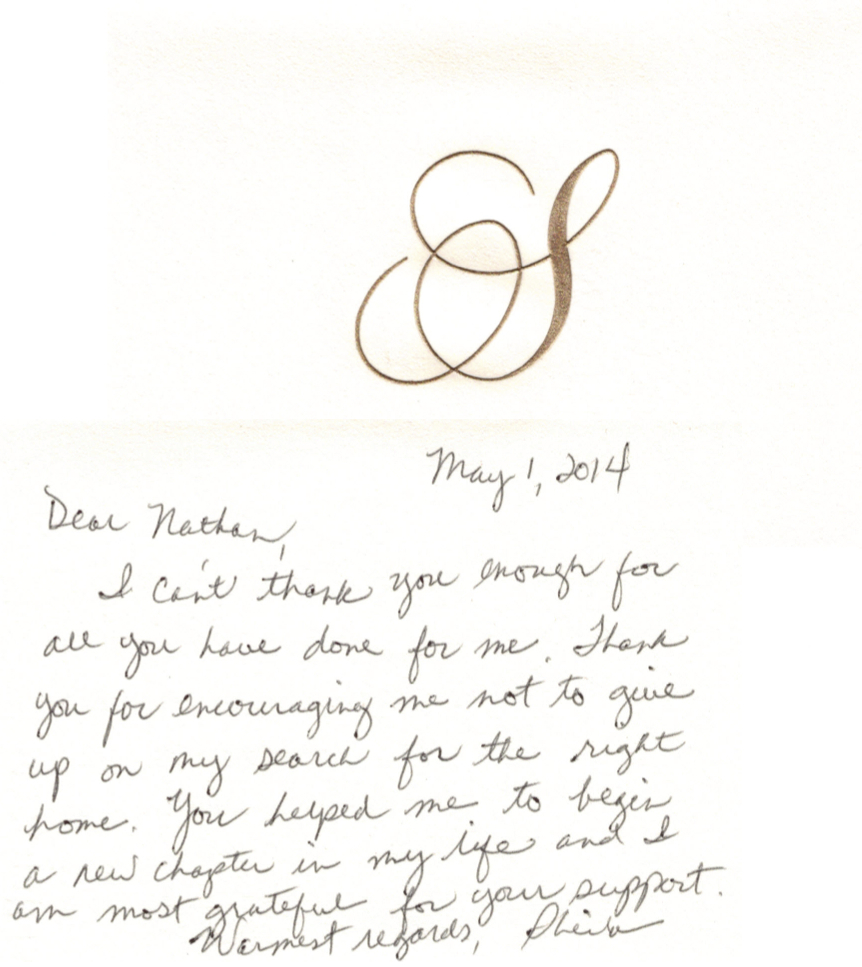 S
May 1, 2014
Dear Nathan,
I can't thank you enough for
all you have done for me. Thank
you for encouraging me not to give
up on my search for the right
home. You helped me to begin
a new chapter in my life and I
am most grateful for your support.
Warmest regards, Sheila